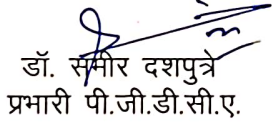 डॉ. समीर दशपुत्रे
प्रभारी पी.जी.डी.सी.ए.